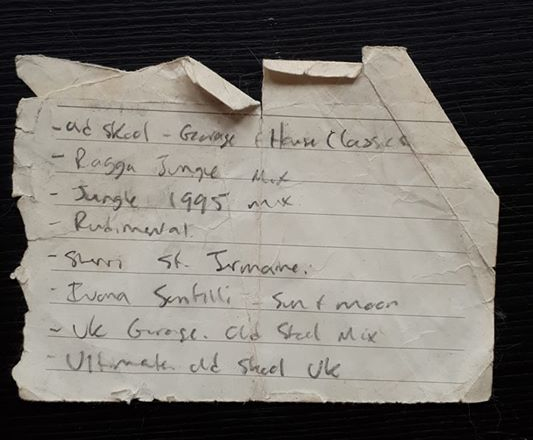 - old skool - Garage & House Classics
- Ragga Jungle Mix
- Jungle 1995 mix.
- Rudimental.
- Sherri St. Jermane.
- Ivana Santilli - Sun & moon
- Uk Garage. Old Skool Mix
- Ultimate. old skool Uk